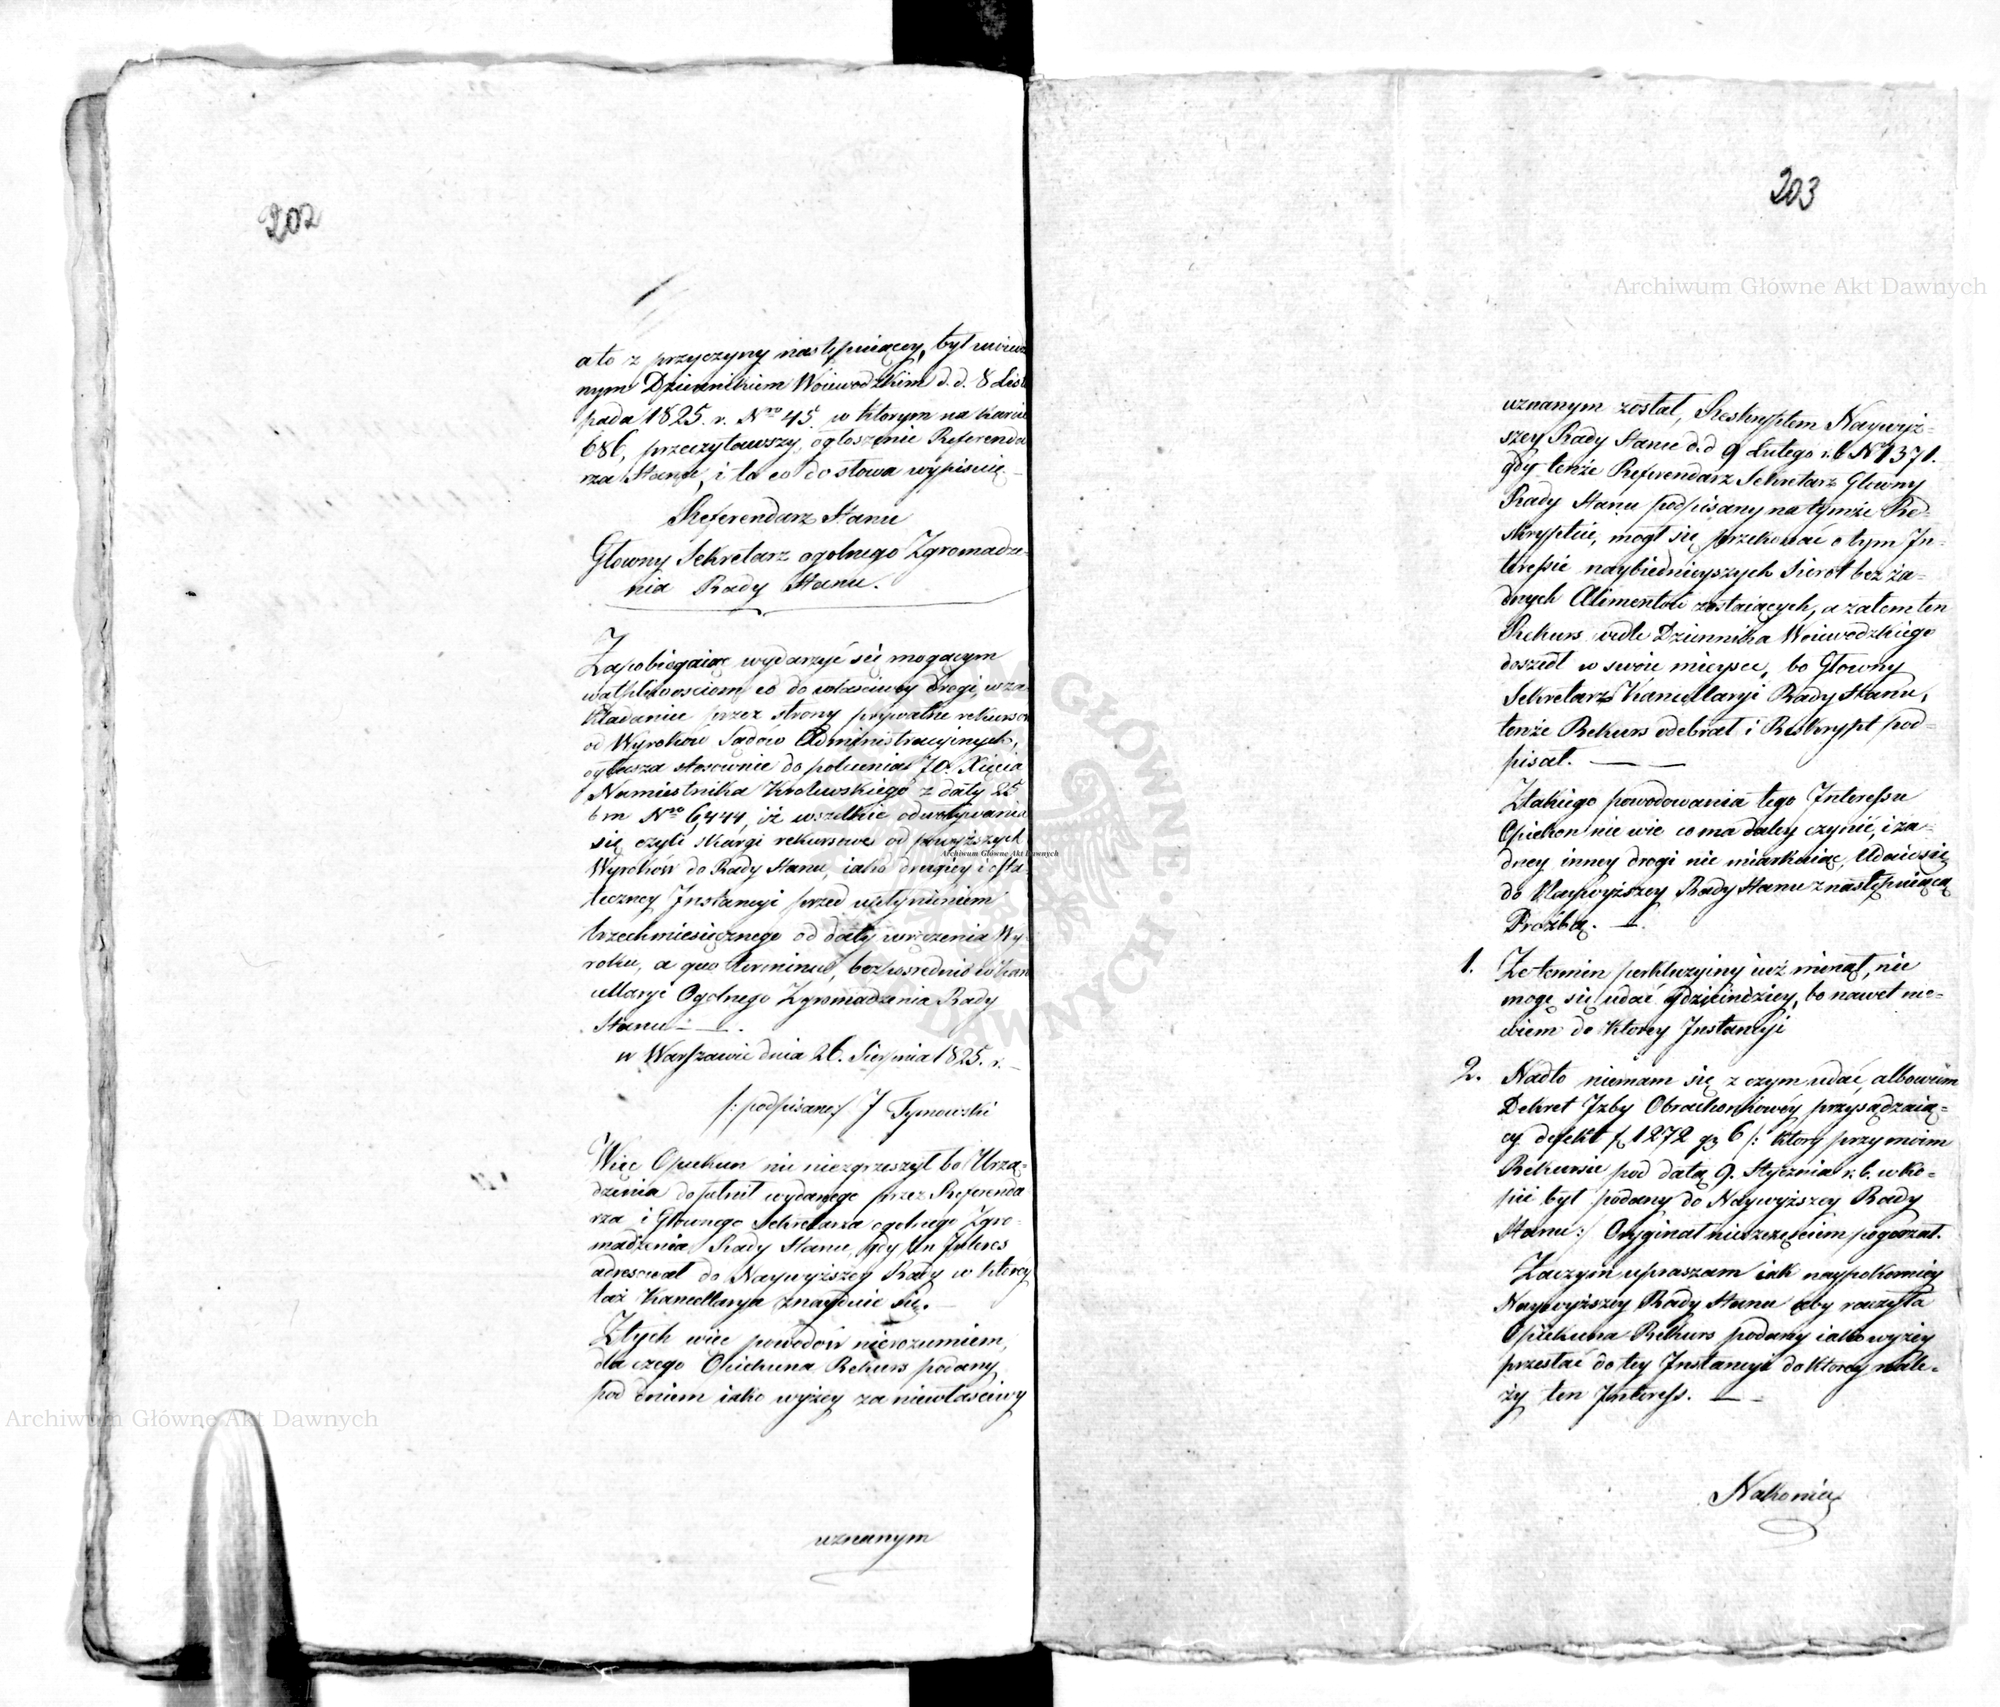 202
a to z przyczyny następuiącey, był
nym Dziennikiem Woiewodzkim d. d. 8 Listo
pada 1825. r. Nro 45. w ktorym na karcie
686, przeczytawszy, ogłoszenie Referenda
rza Stanu, i ta co do słowa wypisuię
Referendarz Stanu
Głowny Sekretarz ogolnego Zgromadze-
nia Rady Stanu.
Zapobiegaiąc wydarzyć się mogącym
wątpliwosciom co do własciwey drogi, w za
kładaniu przez strony prywatne rekursow
od Wyrokow Sądow Administracyinych,
ogłasza stosownie do polecenia JO. Xięcia
Namiestnika Krolewskiego z daty 25
bm Nro 6444, iż wszelkie odwoływania
się czyli skargi rekursowe od powyższych
Wyroków do Rady Stanu, iako drugiey i osta
teczney Instancyi przed upłynieniem
trzechmiesięcznego od daty wręczenia Wy-
roku, a quo terminu, bezposrednio w Kan
cellaryi Ogolnego Zgromadzenia Rady
Stanu — .
w Warszawie dnia 26. Sierpnia 1825. r. —
/: podpisano:/ J Tymowski
Więc Opiekun nie niezgrzeszył bo Urzą-
dzenia dopełnił wydanego przez Referenda
rza i Głownego Sekretarza ogolnego Zgro-
madzenia Rady Stanu, gdy ten Interes
adresował do Naywyższey Rady w ktorey
taż Kancellarya znayduie się. —
Z tych więc powodow nierozumiem,
dla czego Opiekuna Rekurs podany
pod dniem iako wyżey za niewłasciwy
uznanym
203
uznanym został, Reskryptem Naywyż-
szey Rady Stanu d. d 9 Lutego r. b N 1371.
gdy tenże Referendarz Sekretarz Głowny
Rady Stanu podpisany na tymże Re-
skrypcie, mogł się przekonać o tym In-
teressie naybiednieyszych Sierot bez ża-
dnych Alimentów zostaiących, a zatem ten
Rekurs vedle Dziennika Woiewodzkiego
doszedł w swoie mieysce, bo Głowny
Sekretarz Kancellaryi Rady Stanu,
tenże Rekurs odebrał i Reskrypt pod-
pisał. — —
Z takiego powodowania tego Interessu
Opiekun nie wie co ma daley czynić, i ża-
dney inney drogi nie miarkuiąc, Udaie się
do Naywyższey Rady Stanu z następuiącą
Proźbą. —.
1. Że termin perkluzyiny iuż minął, nie
mogę się udać gdzieindziey, bo nawet nie-
wiem do ktorey Instancyi
2. Nadto niemam się z czym udać, albowiem
Dekret Izby Obrachonkowéy przysądzaią-
cy defekt f 1272 gr 6 /: ktory przy moim
Rekursie pod datą 9. Stycznia r. b. w ko-
pii był podany do Naywyższey Rady
Stanu:/ Oryginał nieszczęsciem pogorzał.
Zaczym upraszam iak naypokorniey
Naywyższey Rady Stanu aby raczyła
Opiekuna Rekurs podany iako wyżey
przesłać do tey Instancyi do ktorey nale-
ży ten Interess. — —
Nakoniec
Archiwum Główne Akt Dawnych
Archiwum Główne Akt Dawnych
Archiwum Główne Akt Dawnych
GŁÓWNE
DAWNYCH